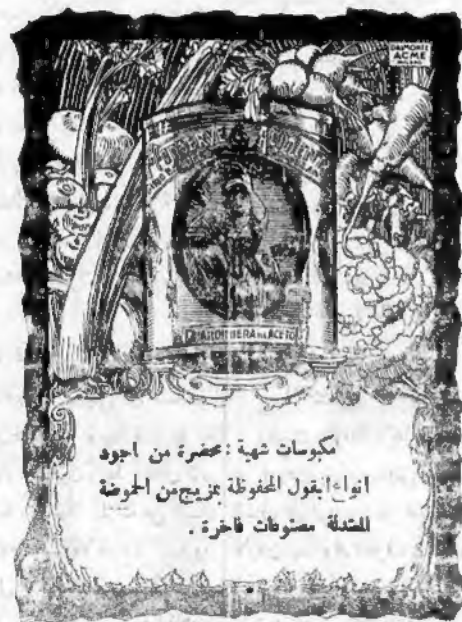 DALMONTE
ACME
MILANO
مكبوسات شهية : محضرة من اجود
انواع البقول المحفوظة بمزيج من الحموضة
المعتدلة مصنوعات فاخرة .